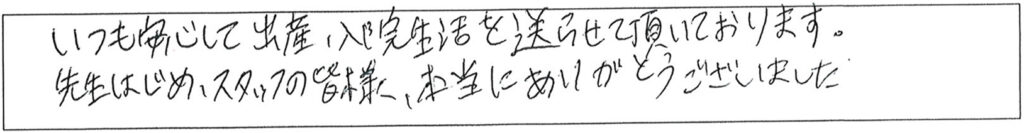 いつも安心して出産、入院生活を送らせて頂いております。
先生はじめ、スタッフの皆様、本当にありがとうございました